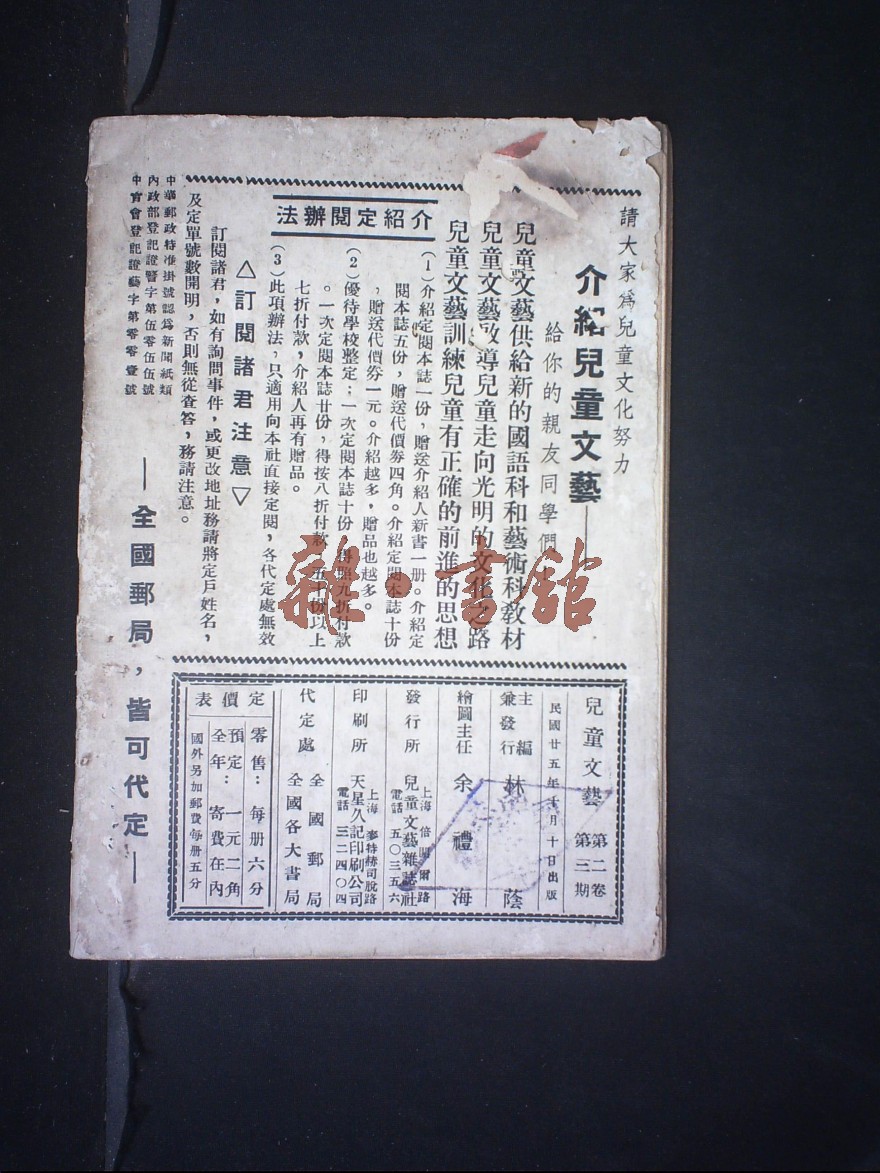 請大家爲兒童文化努力
介紹兒童文藝——
給你的親友同學們
兒童文藝供給新的國語科和藝術科教材
兒童文藝啟導兒童走向光明的文化之路
兒童文藝訓練兒童有正確的前進的思想
介紹定閱辦法
(1)介紹定閱本誌一份，贈送介紹人新書一册。介紹定
閱本誌五份，贈送代價券四角。介紹定閱本誌十份
，贈送代價券一元。介紹越多，贈品也越多。
(2)優待學校整定；一次定閱本誌十份，得照九折付款
。一次定閱本誌廿份，得按八折付款，五十份以上
七折付款，介紹人再有贈品。
(3)此項辦法，只適用向本社直接定閱，各代定處無效
△訂閱諸君注意▽
訂閱諸君，如有詢問事件，或更改地址務請將定戶姓名，
及定單號數開明，否則無從查答，務請注意。
中華郵政特准掛號認爲新聞紙類
內政部登記證警字第伍零伍伍號
中宣會登記證藝字第零零壹號
——全國郵局，皆可代定——
兒童文藝 第二卷
第三期
民國廿五年十月十日出版
主編
兼發行 林蔭
繪圖主任 余禮海
發行所 兒童文藝雜誌社
上海 倍開爾路
電話 五〇三五六
印刷所 天星久記印刷公司
上海 麥特赫司脫路
電話 三二四〇四
代定處 全國郵局
全國各大書局
定價表
零售：每册六分
預定：一元二角
全年：寄費在內
國外另加郵費每册五分
雜·書館